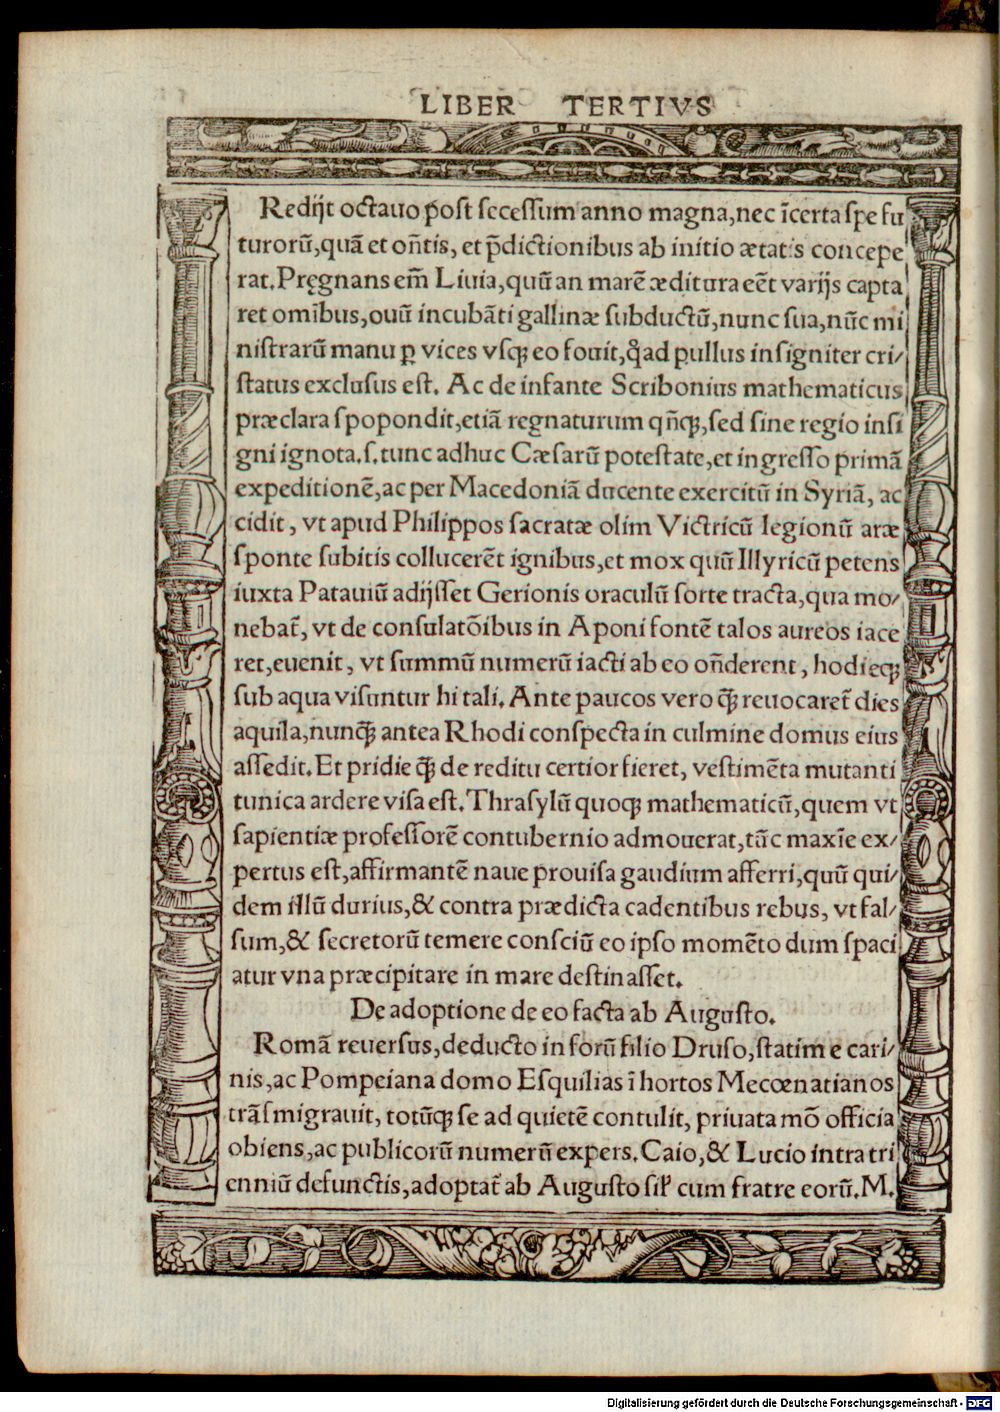 LIBER TERTIVS
Redijt octauo post secessum anno magna,nec īcerta spe fu
turorū,quā et oñtis, et p̄dictionibus ab initio ætatis concepe
rat.Pręgnans em̄ Liuia,quū an marē æditura eēt varijs capta
ret omībus,ouū incubāti gallinæ subductū,nunc sua,nūc mi
nistrarū manu ꝑ vices vsqꝫ eo fouit,qđad pullus insigniter cri/
status exclusus est. Ac de infante Scribonius mathematicus
præclara spopondit,etiā regnaturum qñqꝫ,sed sine regio insi
gni ignota.s.tunc adhuc Cæsarū potestate,et ingresso primā
expeditionē,ac per Macedoniā ducente exercitū in Syriā, ac
cidit, vt apud Philippos sacratæ olim Victricū legionū aræ
sponte subitis collucerēt ignibus,et mox quū Illyricū petens
iuxta Patauiū adijsset Gerionis oraculū sorte tracta,qua mo/
nebat̄, vt de consulatōibus in Aponi fontē talos aureos iace
ret,euenit, vt summū numerū iacti ab eo oñderent, hodieqꝫ
sub aqua visuntur hi tali. Ante paucos vero qꝫ̄ reuocaret̄ dies
aquila,nunqꝫ̄ antea Rhodi conspecta in culmine domus eius
assedit. Et pridie qꝫ̄ de reditu certior fieret, vestimēta mutanti
tunica ardere visa est. Thrasylū quoqꝫ mathematicū,quem vt
sapientiæ professorē contubernio admouerat,tūc maxīe ex/
pertus est,affirmantē naue prouisa gaudium afferri,quū qui/
dem illū durius,& contra prædicta cadentibus rebus, vt fal/
sum,& secretorū temere consciū eo ipso momēto dum spaci
atur vna præcipitare in mare destinasset.
De adoptione de eo facta ab Augusto.
Romā reuersus,deducto in forū filio Druso,statim e cari/
nis,ac Pompeiana domo Esquilias ī hortos Mecœnatianos
trāsmigrauit, totūqꝫ se ad quietē contulit, priuata mō officia
obiens,ac publicorū numerū expers. Caio,& Lucio intra tri
enniū defunctis,adoptat̄ ab Augusto sił cum fratre eorū.M.
Digitalisierung gefördert durch die Deutsche Forschungsgemeinschaft - DFG